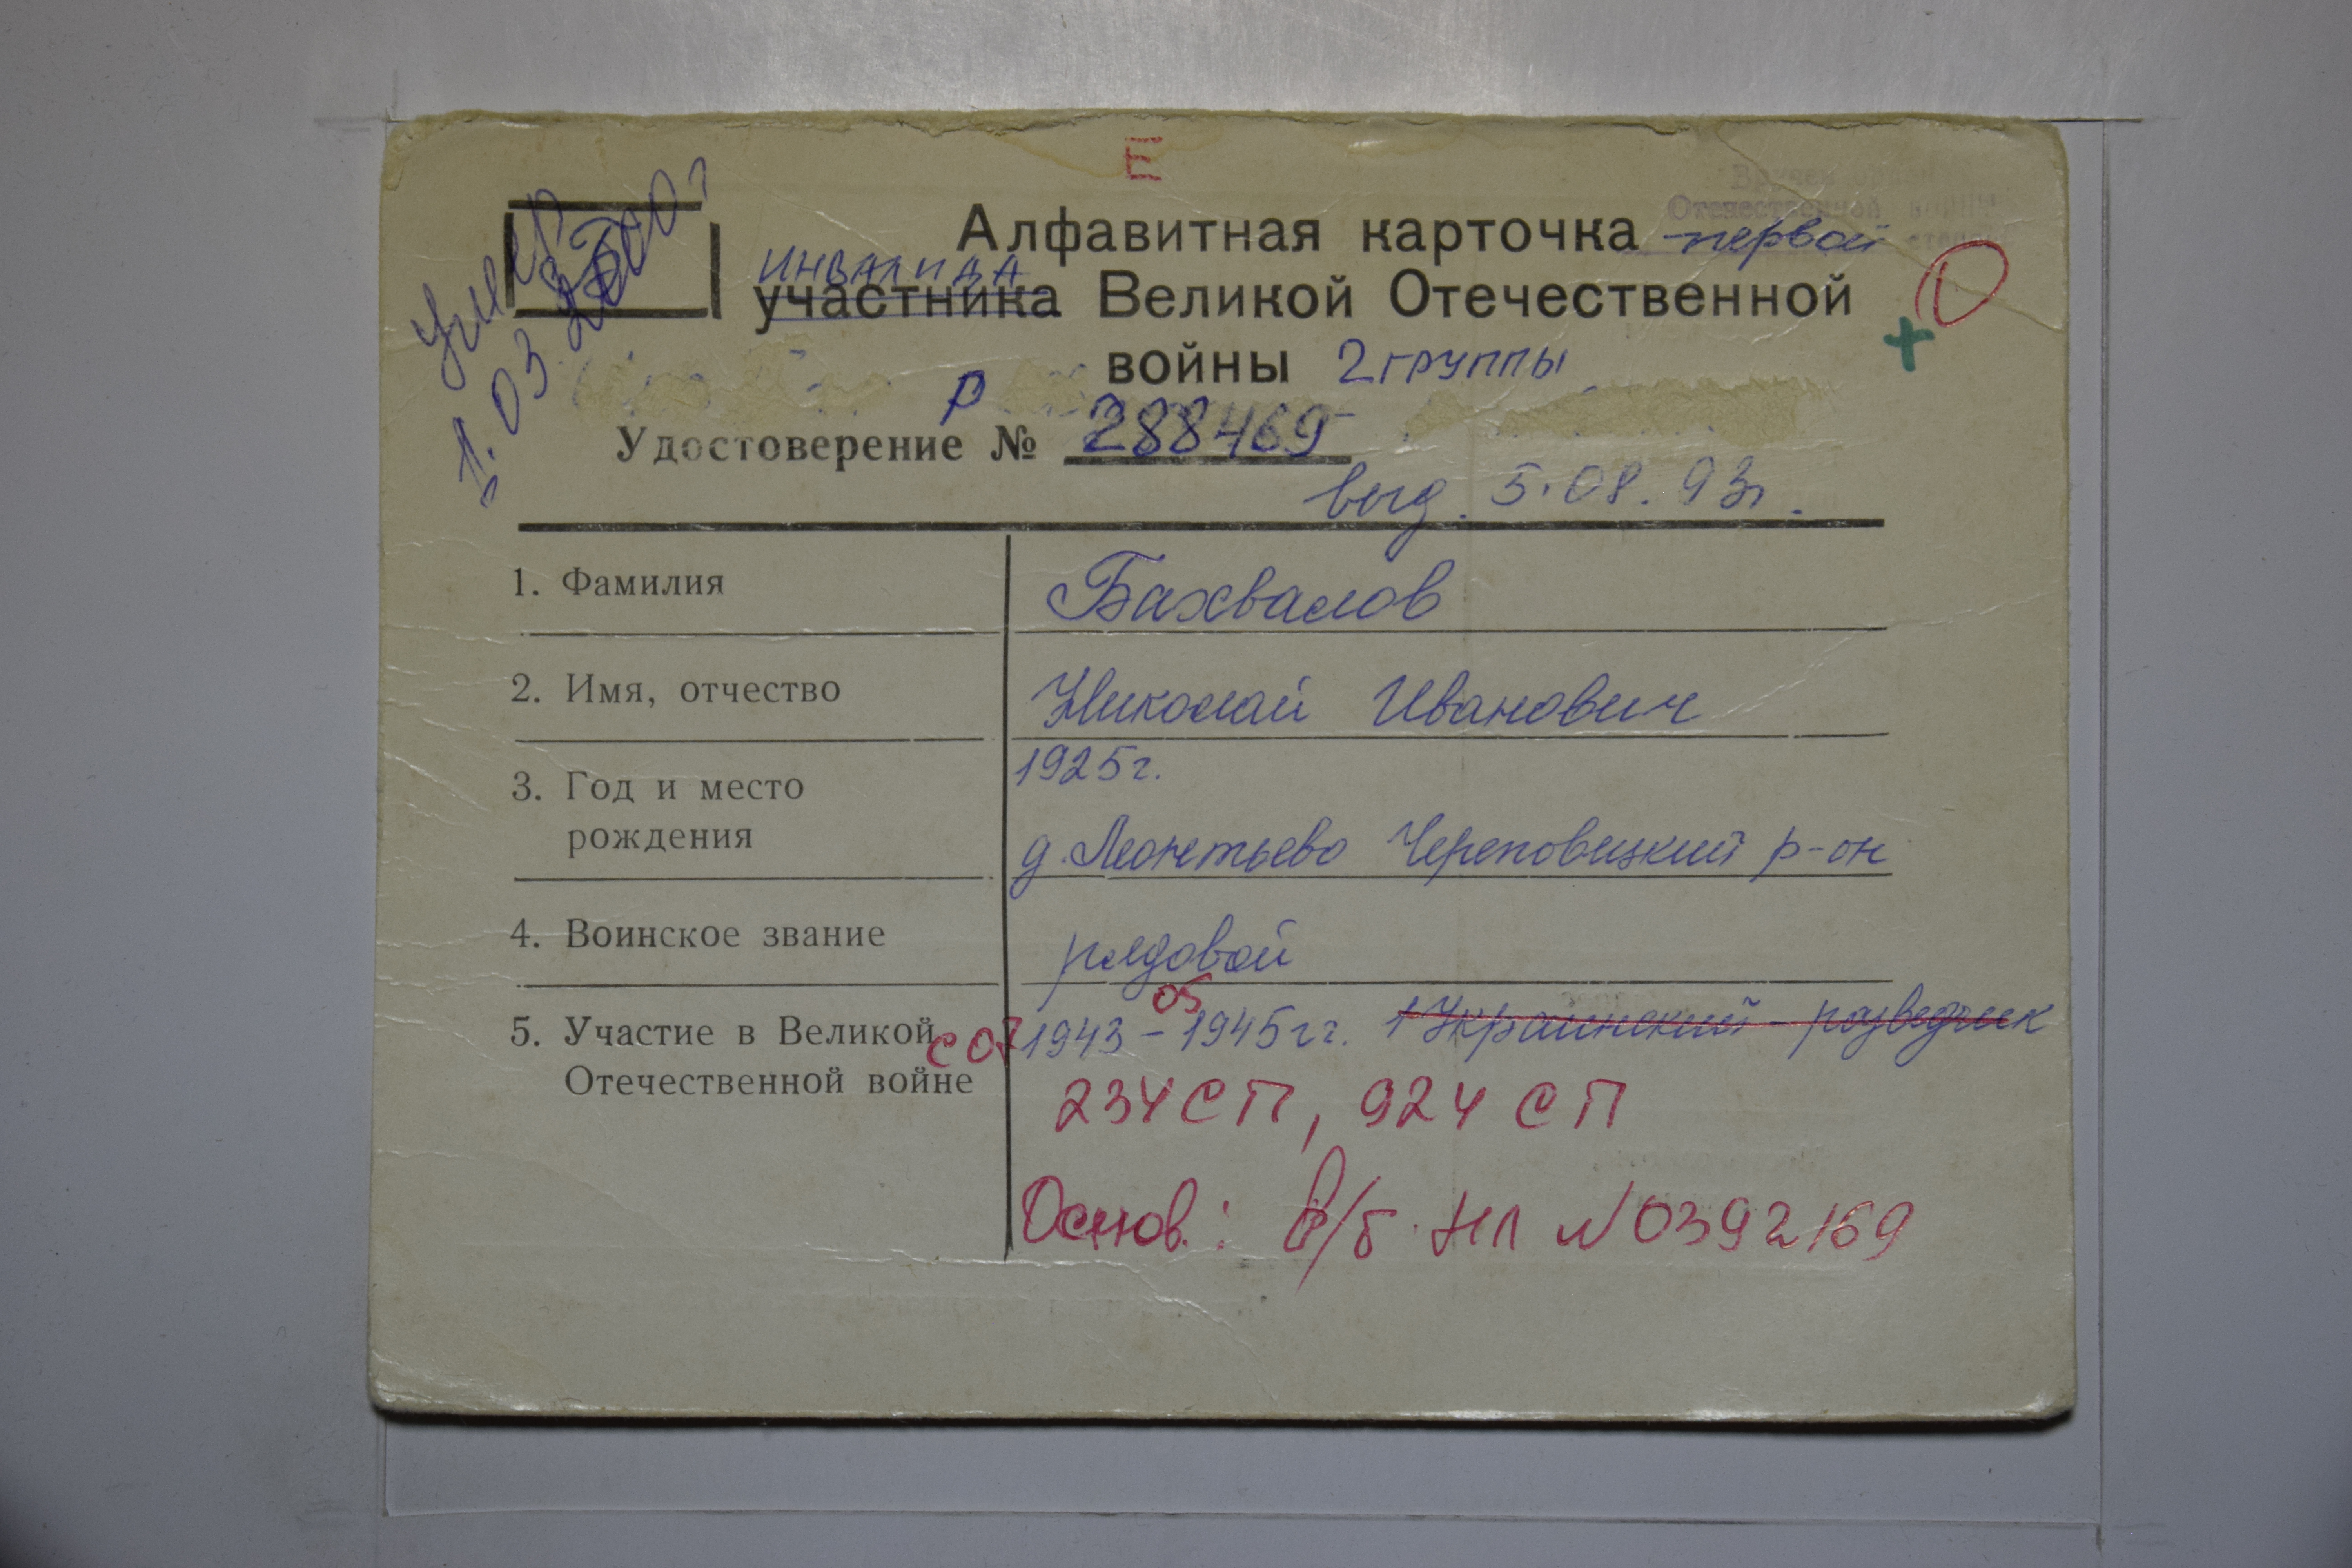 Е
Вручен орден
Отечественной войны
первой степени
Алфавитная карточка
ИНВАЛИДА
участника Великой Отечественной
войны 2 группы
Умер
1.03.2000г
Р
Удостоверение № 288469
выд. 5.08.93г.
1. Фамилия Бахвалов
2. Имя, отчество Николай Иванович
3. Год и место 1925г.
рождения д. Леонтьево Череповецкий р-он
4. Воинское звание рядовой
05
5. Участие в Великой с 07 1943 – 1945гг. 1 Украинский – разведчик
Отечественной войне
234 СП, 924 СП
Основ.: в/б НЛ №0392169